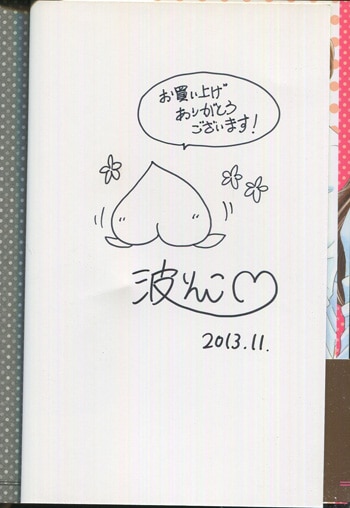 お買い上げ
ありがとう
ございます！
波りんこ♡
2013.11.